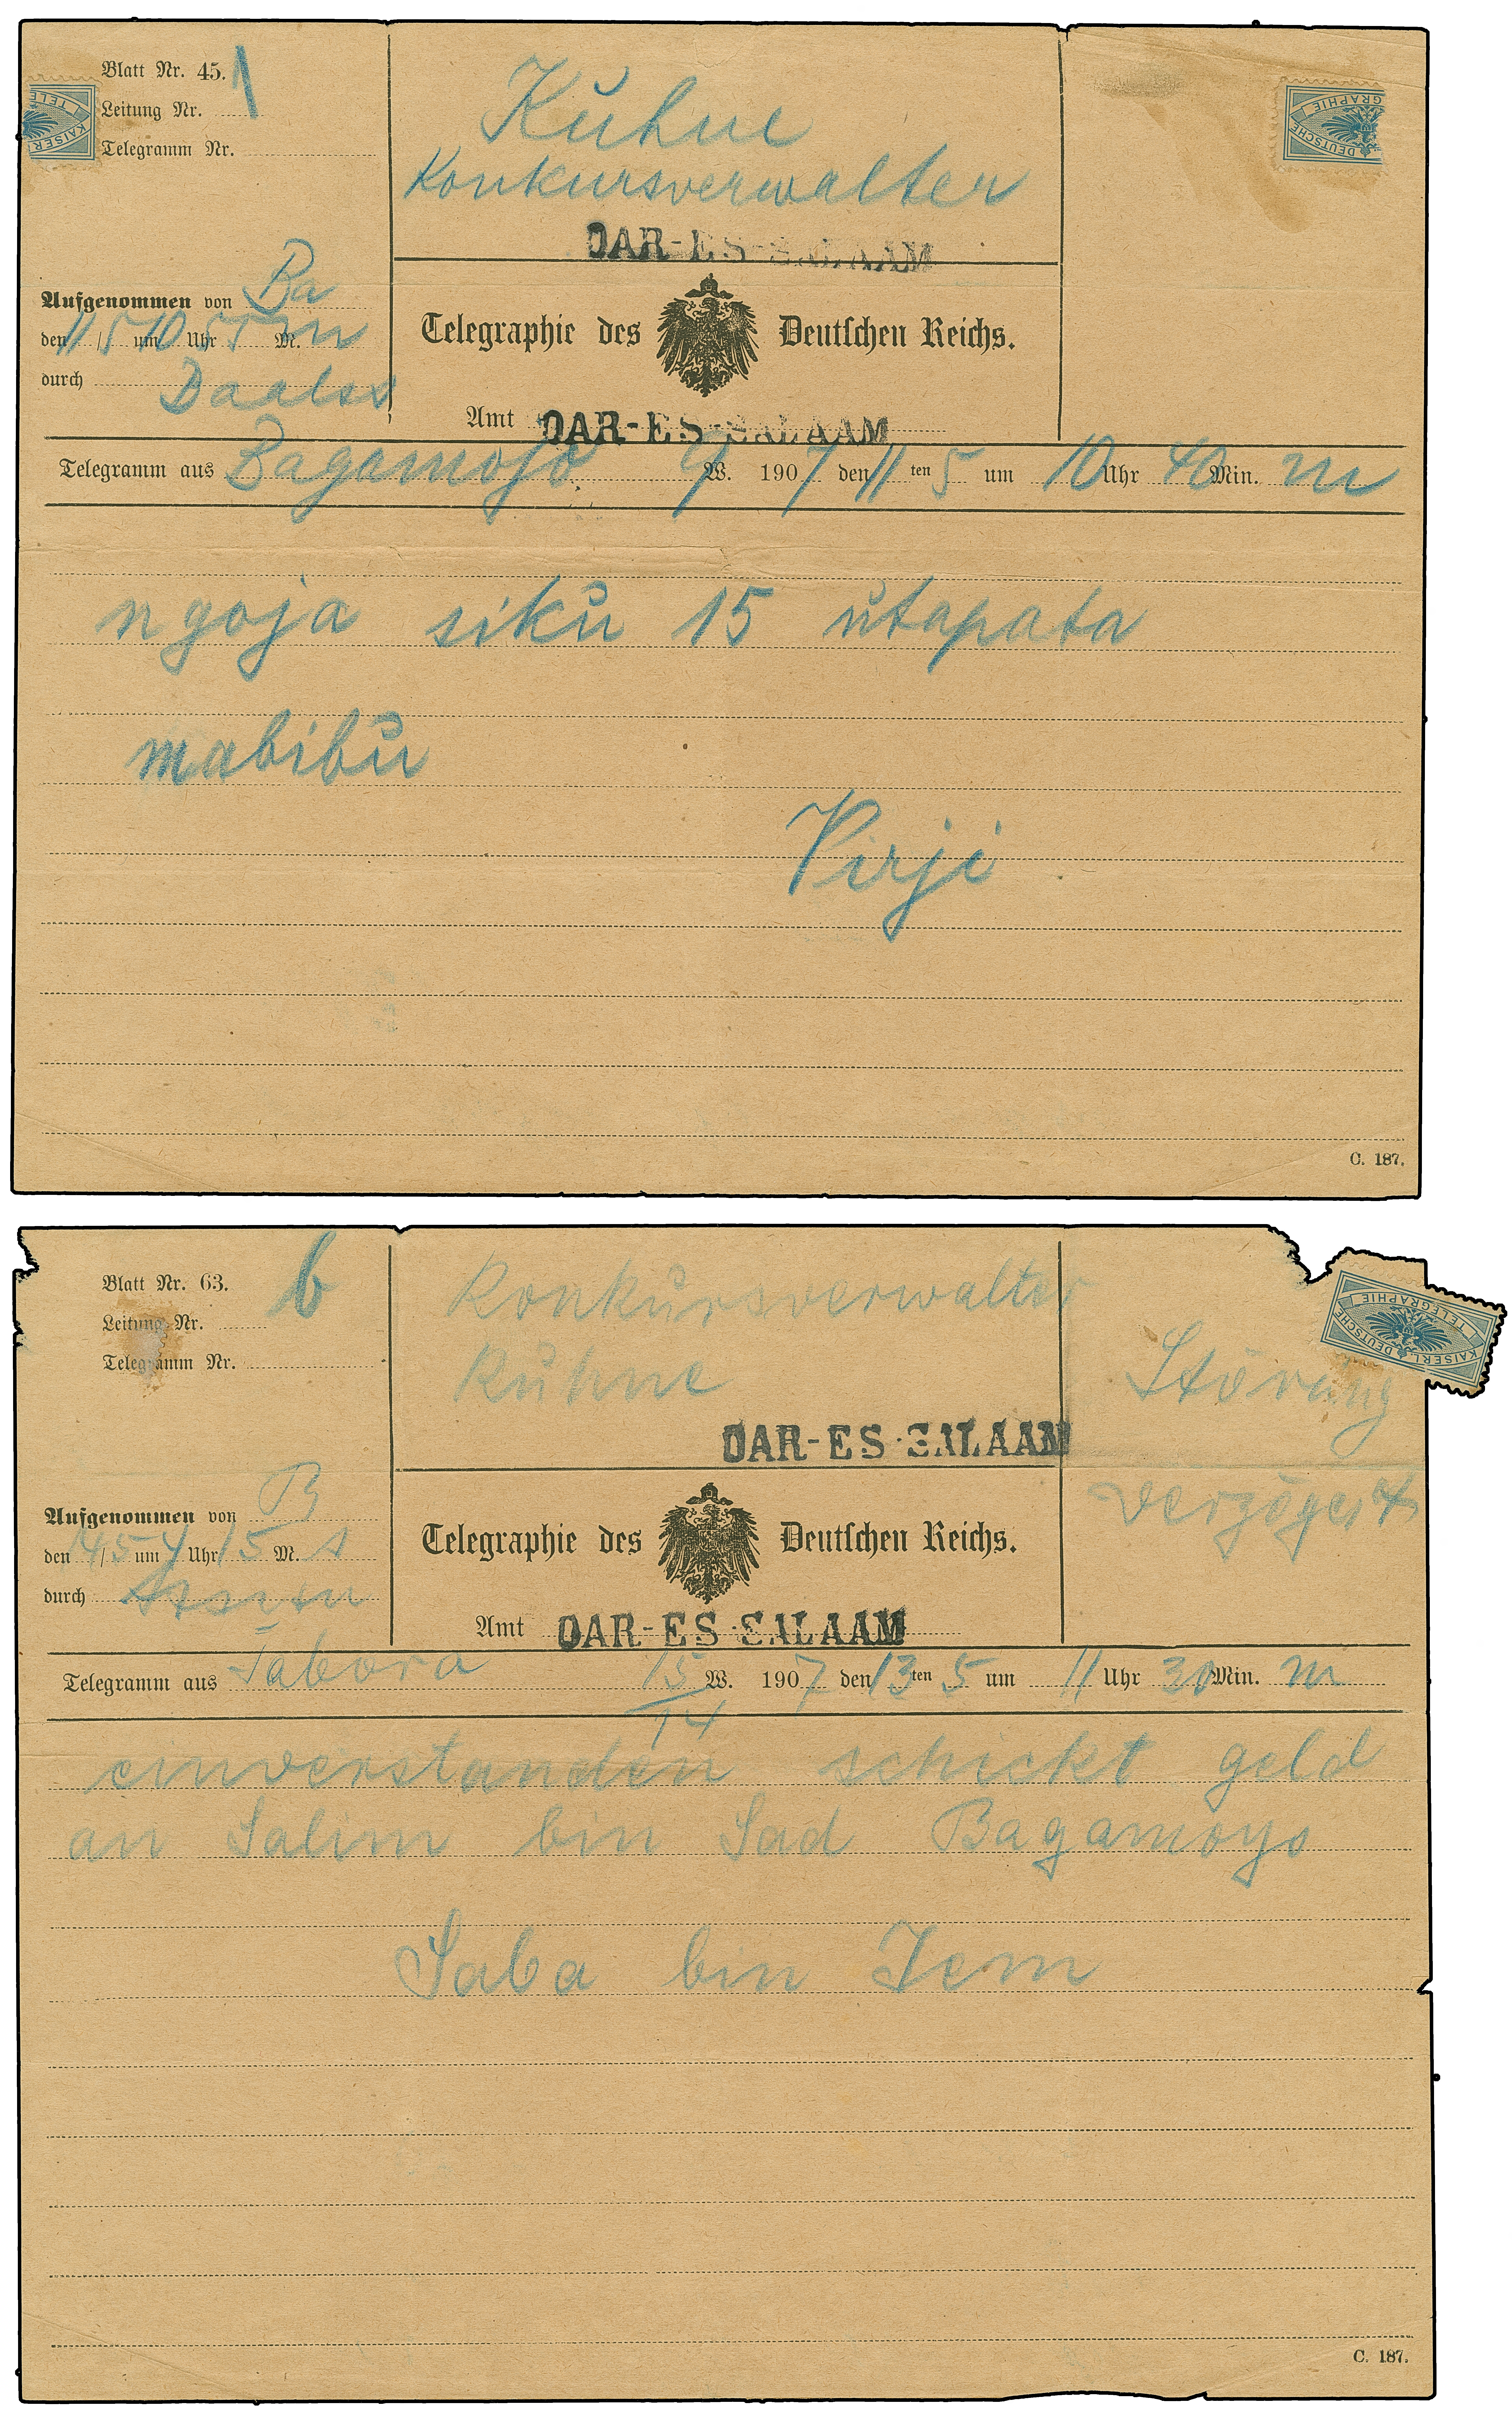 Blatt Nr. 45. 1
Leitung Nr.
Telegramm Nr.
Kühne
Konkursverwalter
DAR-ES-SALAAM
KAISERL. DEUTSCHE
TELEGRAPHIE
Aufgenommen von Ba
den 11/5 um 10 Uhr 55 M. m
durch
Telegraphie des Deutschen Reichs.
Amt DAR-ES-SALAAM
Telegramm aus Bagamojo W. 1907 den 11ten 5 um 10 Uhr 40 Min. m
ngoja siku 15 utapata
mabibu
Virji
C. 187.
Blatt Nr. 63. b
Leitung Nr.
Telegramm Nr.
Konkursverwalter
Kühne
DAR-ES-SALAAM
KAISERL. DEUTSCHE
TELEGRAPHIE
Störung
verzögert
Aufgenommen von B
den 14/5 um Uhr 15 M.
durch
Telegraphie des Deutschen Reichs.
Amt DAR-ES-SALAAM
Telegramm aus Tabora 15/14 W. 1907 den 13ten 5 um 11 Uhr 30 Min. m
einverstanden schickt geld
an Salim bin Sad Bagamoyo
Saba bin Jem
C. 187.